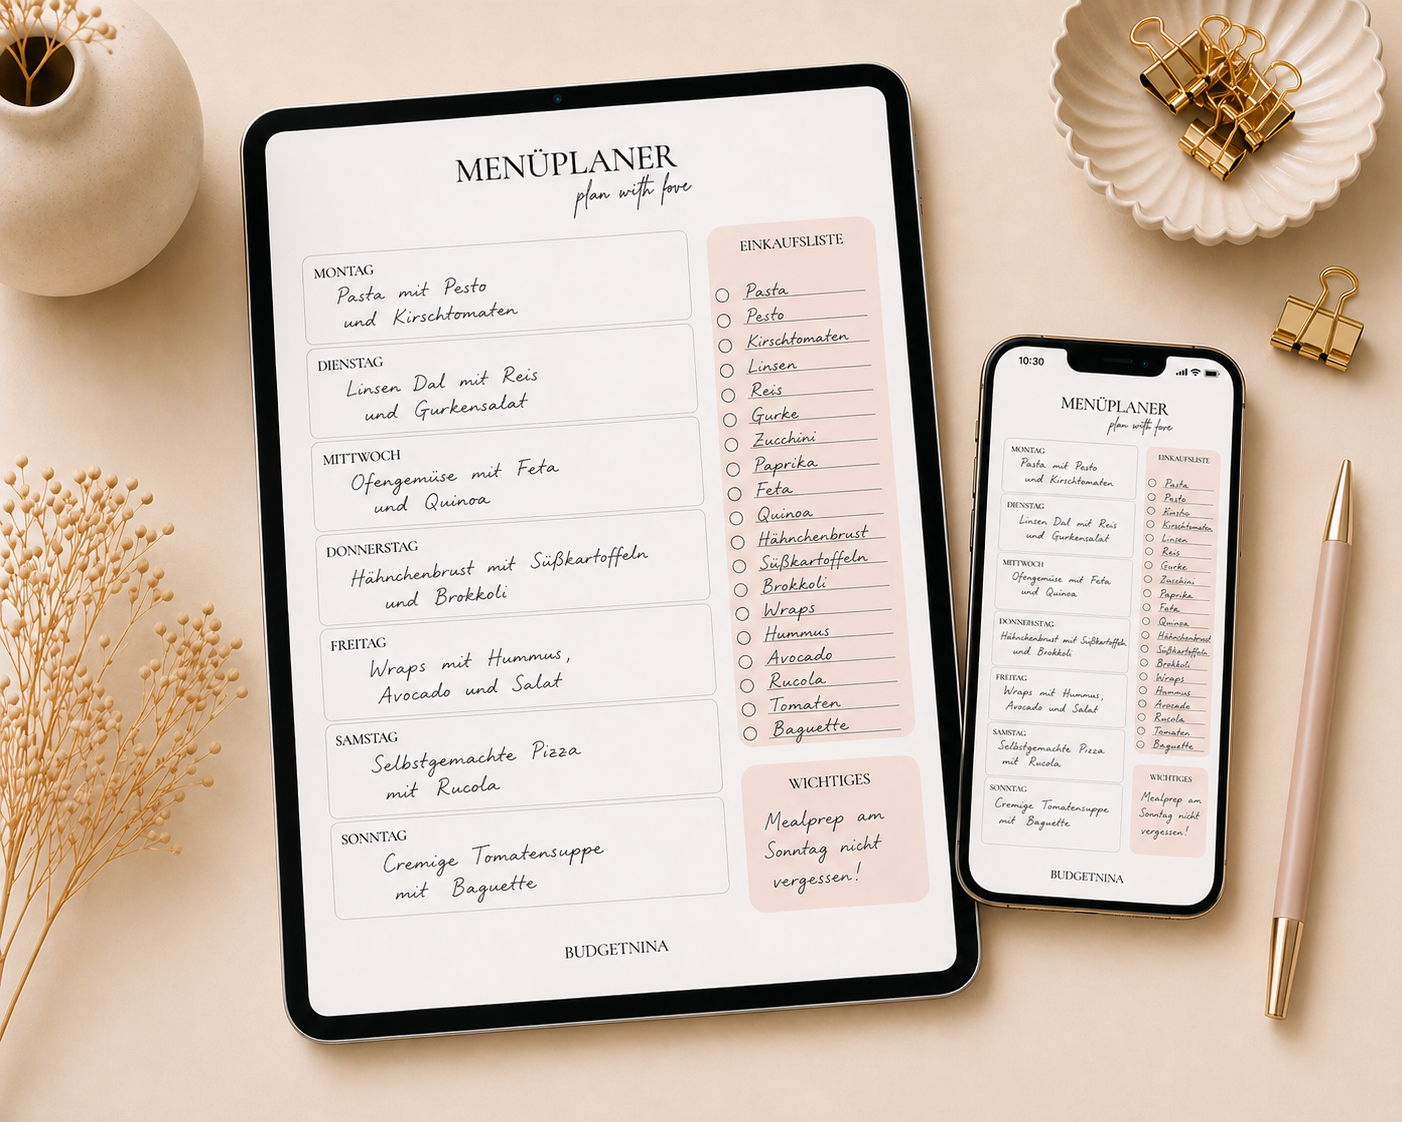 MENÜPLANER
plan with love
MONTAG
Pasta mit Pesto
und Kirschtomaten
DIENSTAG
Linsen Dal mit Reis
und Gurkensalat
MITTWOCH
Ofengemüse mit Feta
und Quinoa
DONNERSTAG
Hähnchenbrust mit Süßkartoffeln
und Brokkoli
FREITAG
Wraps mit Hummus,
Avocado und Salat
SAMSTAG
Selbstgemachte Pizza
mit Rucola
SONNTAG
Cremige Tomatensuppe
mit Baguette
EINKAUFSLISTE
Pasta
Pesto
Kirschtomaten
Linsen
Reis
Gurke
Zucchini
Paprika
Feta
Quinoa
Hähnchenbrust
Süßkartoffeln
Brokkoli
Wraps
Hummus
Avocado
Rucola
Tomaten
Baguette
WICHTIGES
Mealprep am
Sonntag nicht
vergessen!
BUDGETNINA
10:30
MENÜPLANER
plan with love
MONTAG
Pasta mit Pesto
und Kirschtomaten
DIENSTAG
Linsen Dal mit Reis
und Gurkensalat
MITTWOCH
Ofengemüse mit Feta
und Quinoa
Hähnchenbrust mit Süßkartoffeln
und Brokkoli
FREITAG
Wraps mit Hummus,
Avocado und Salat
SAMSTAG
Selbstgemachte Pizza
mit Rucola
SONNTAG
Cremige Tomatensuppe
mit Baguette
EINKAUFSLISTE
Pasta
Pesto
Kirschtomaten
Linsen
Reis
Gurke
Zucchini
Paprika
Feta
Quinoa
Hähnchenbrust
Süßkartoffeln
Brokkoli
Wraps
Hummus
Avocado
Rucola
Tomaten
Baguette
WICHTIGES
Mealprep am
Sonntag nicht
vergessen!
BUDGETNINA